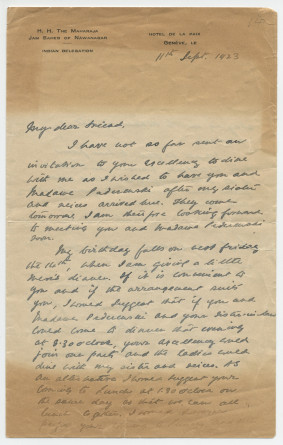 H. H. THE MAHARAJA
JAM SAHEB OF NAWANAGAR
INDIAN DELEGATION
HOTEL DE LA PAIX
GENÈVE, LE
11th Sept. 1923
My dear friend,
I have not so far sent an
invitation to your excellency to dine
with me as I wished to have you and
Madame Paderewski after my sister
and nieces arrived here. They come
tomorrow. I am therefore looking forward
to meeting you and Madame Paderewski
soon.
My birthday falls on next Friday
the 14th when I am giving a little
men's dinner. If it is convenient to
you and if the arrangement suits
you, I would suggest that if you and
Madame Paderewski and your
could come to dinner that evening
at 8.30 o'clock, your excellency could
join our party and the ladies could
dine with my sister and nieces. As
an alternative I would suggest your
coming to lunch at 1.30 o'clock on
the same day so that we can all